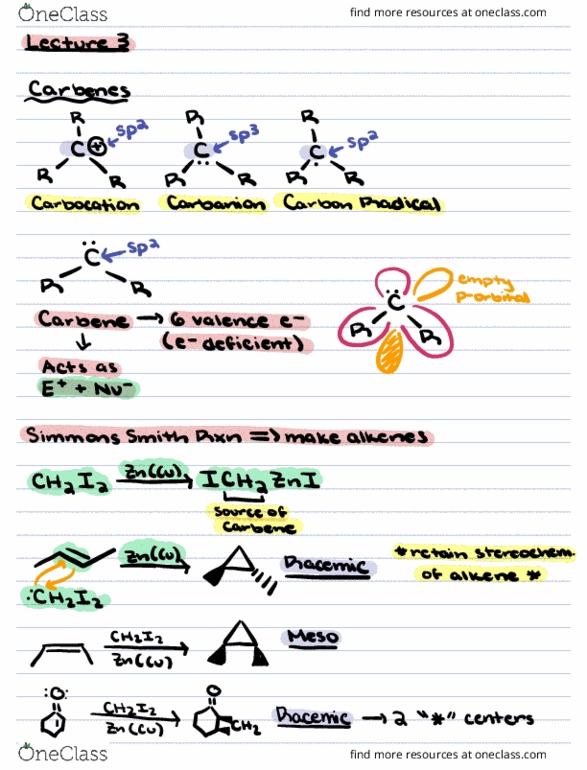 OneClass find more resources at oneclass.com
Lecture 3
Carbenes
R R R
C + sp2 C sp3 C sp2
R R R R R R
Carbocation Carbanion Carbon Radical
C sp2
R R
empty
p-orbital
C
R R
Carbene → 6 valence e-
(e- deficient)
↓
Acts as
E+ + Nu-
Simmons Smith Rxn => make alkenes
CH2I2 Zn(Cu) → ICH2ZnI
source of
carbene
Zn(Cu) → Racemic
*retain stereochem
of alkene *
:CH2I2
CH2I2
Zn(Cu) → Meso
:O: CH2I2
Zn(Cu) → O CH2 Racemic → 2 "*" centers
OneClass find more resources at oneclass.com